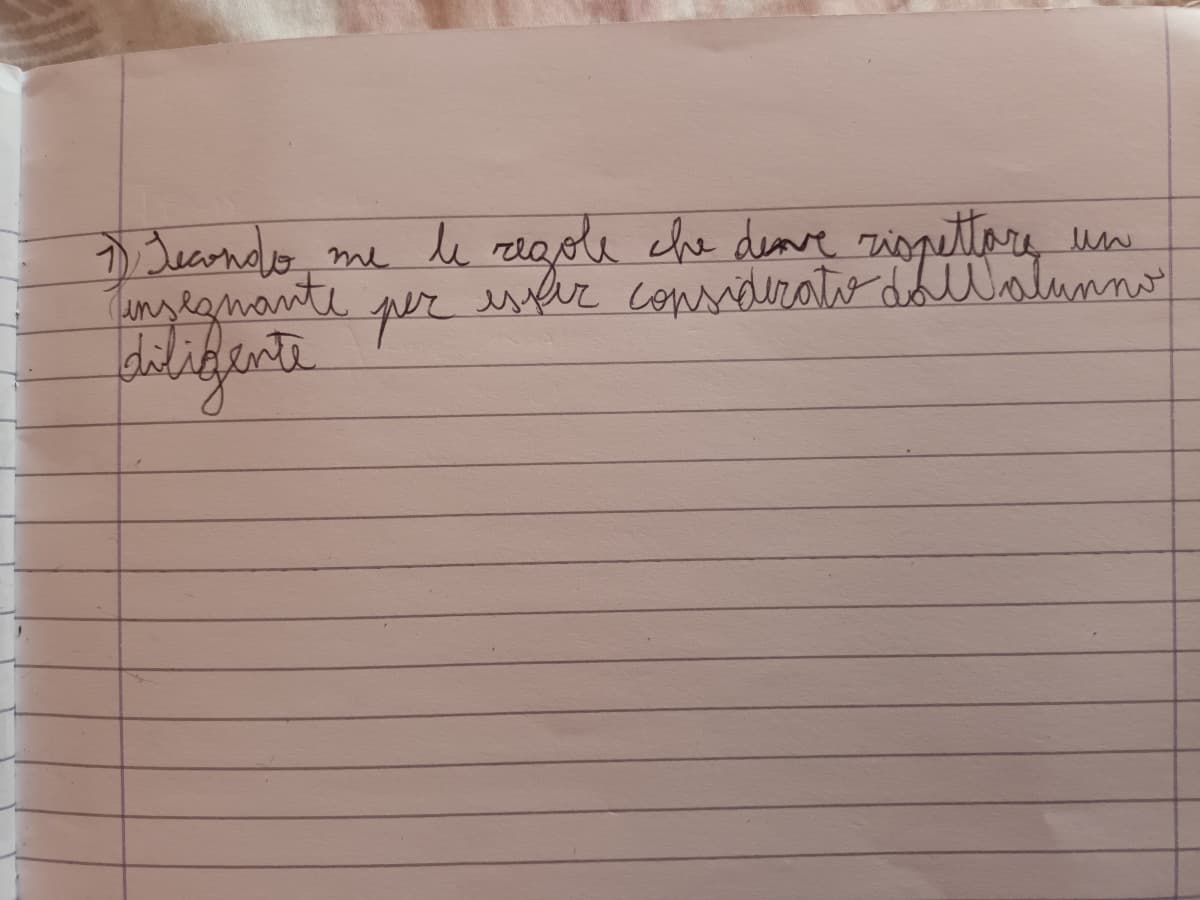 1) Secondo me le regole che deve rispettare un
insegnante per esser considerato dall'alunno
diligente